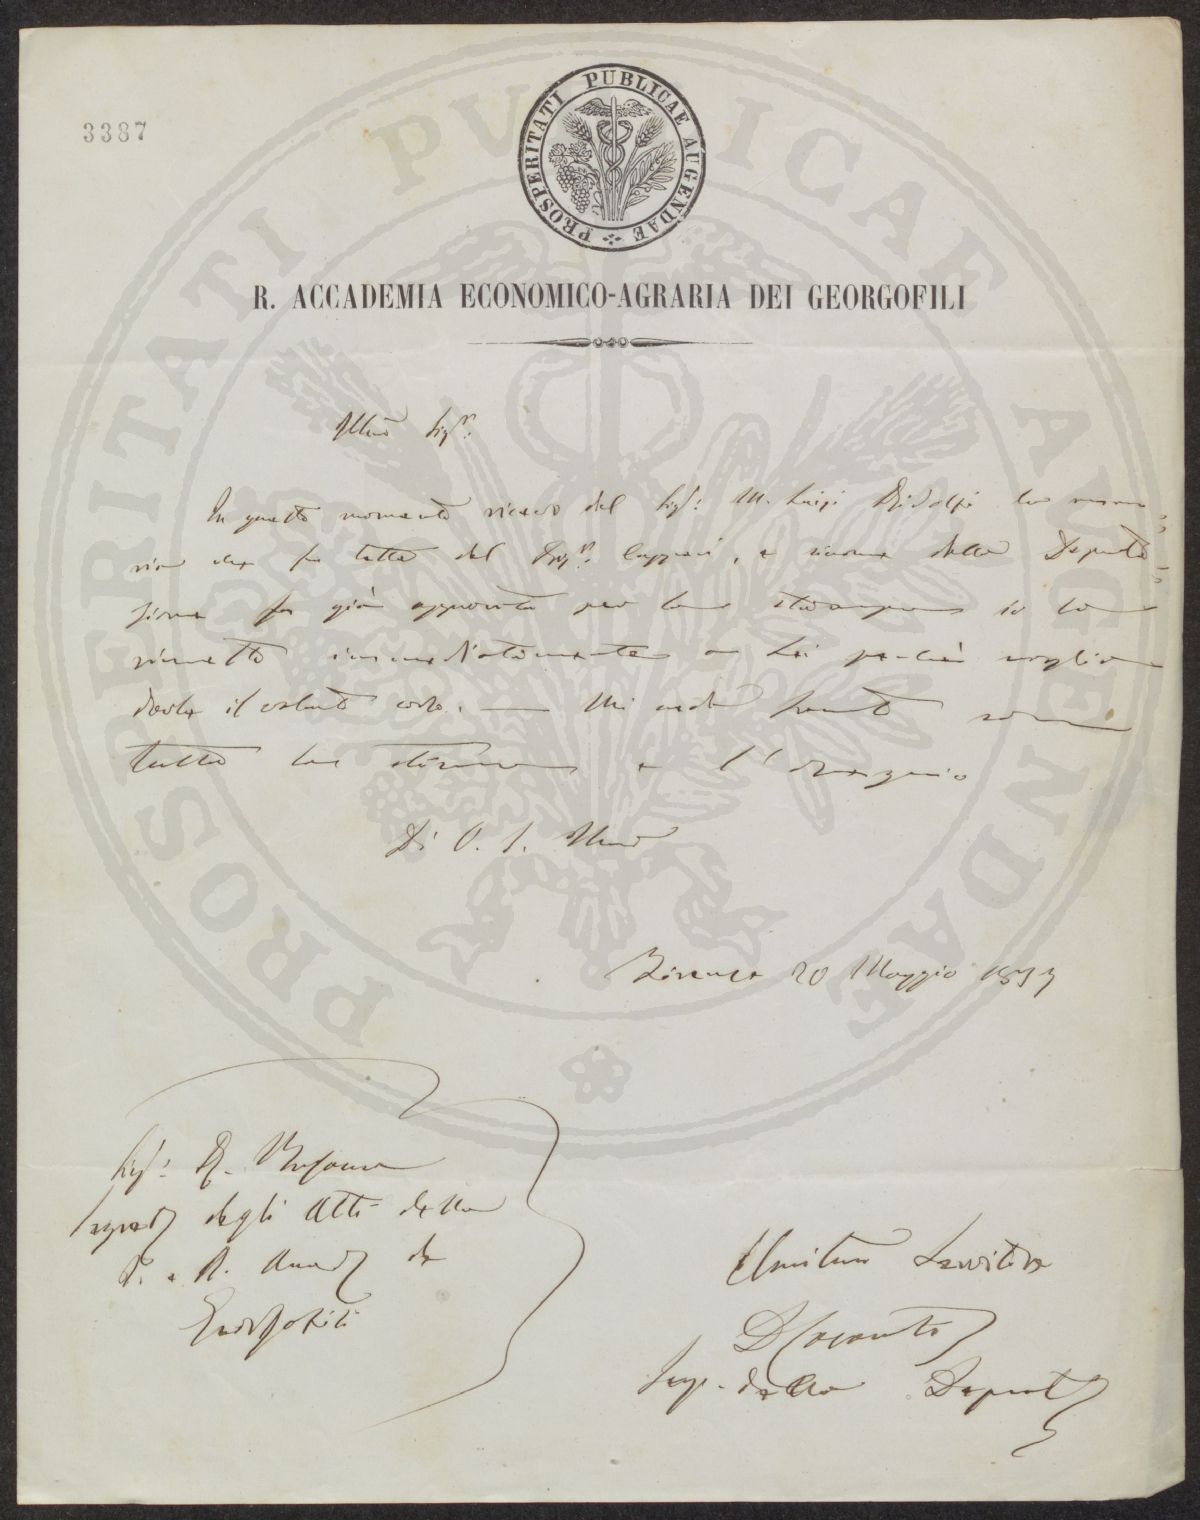 3387
PROSPERITATI PUBLICAE AUGENDAE
R. ACCADEMIA ECONOMICO-AGRARIA DEI GEORGOFILI
Illmo Sigr.
In questo momento ricevo dal Sigr. M. Luigi Ridolfi la memo
ria che fu letta dal Sigr. , e siccome dalla Deputa
zione fu già approvata per la stampa io la
rimetto immediatamente a Lei perchè voglia
darle il voluto corso. — Mi creda con
tutta la stima e l'ossequio
Di V. S. Illma
Firenze 20 Maggio
Sigr.
degli Atti della
I. e R. Accad dei
Georgofili
Umilissmo Servitore
della Deput